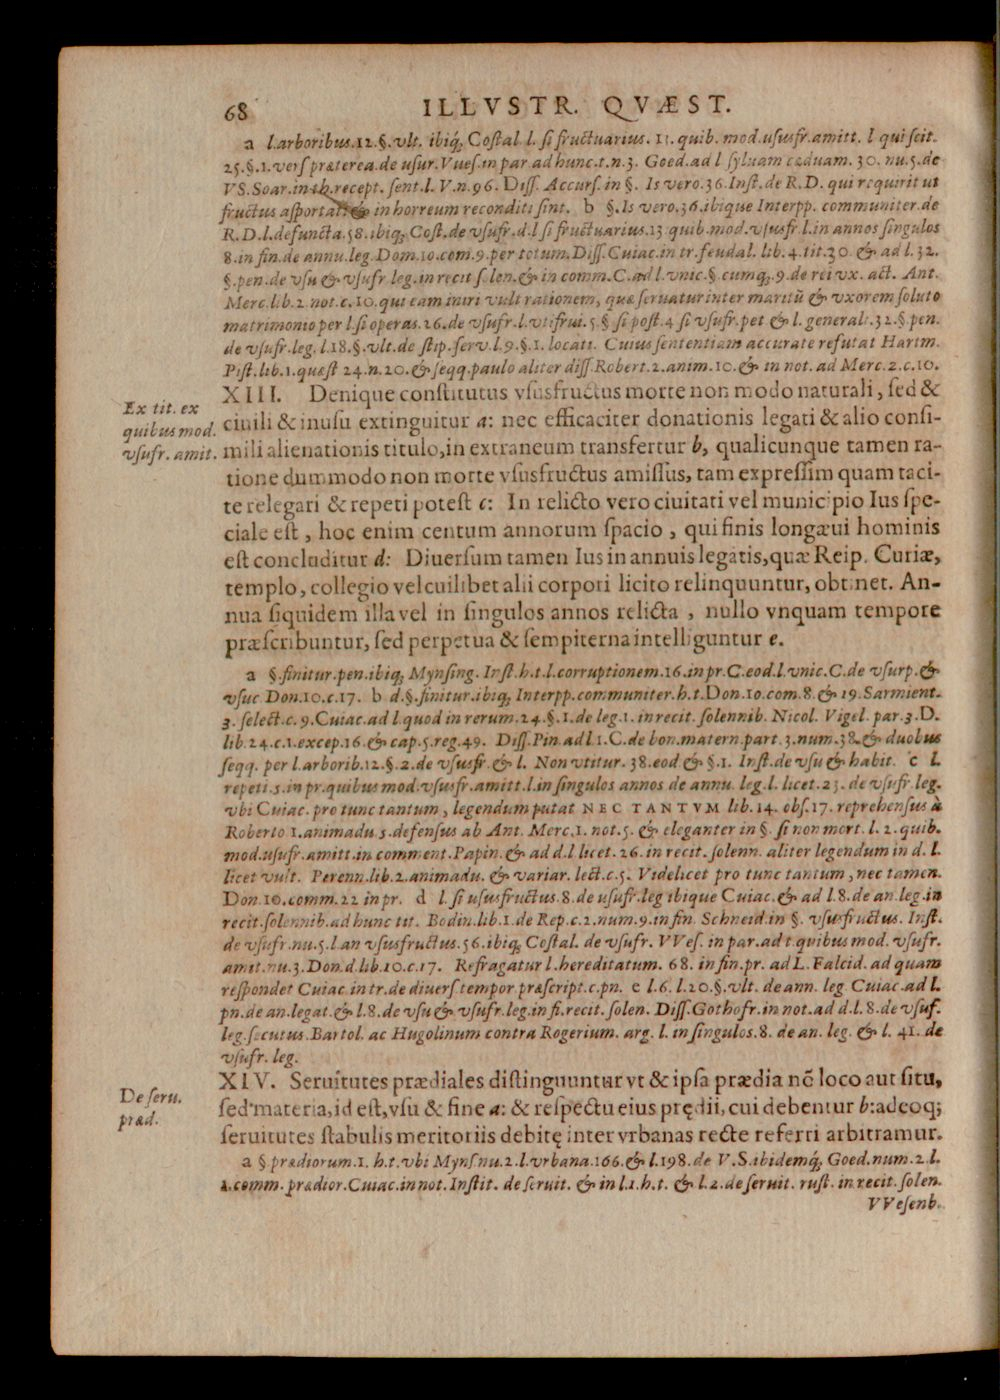 68 ILLVSTR. QVÆST.
a l.arboribus.12.§.vlt. ibiq́; Costal l. si fructuarius. 11. quib. mod.ususfr.amitt. l qui scit.
25.§.1.vers præterea.de usur.Vues.in par ad hunc.t.n.3. Goed.ad l syluam cæduam. 30. nu.5.de
VS.Soar.in th.recept. sent.l. V.n.96. Diss. Accurs.in §. Is vero.36.Inst.de R.D. qui requirit ut
fructus asportati & in horreum reconditi sint. b §.Is vero.36.ibique Interpp. communiter.de
R.D.l.defuncta.58.ibiq; Cost.de vsufr.d.l si fructuarius.13 quib.mod.vsusfr.l.in annos singulos
8.in fin.de annu.leg.Dom.10.com.9.per totum.Diss.Cuiac.in tr.feudal. lib.4.tit.30. & ad l.32.
§.pen.de vsu & vsufr leg.in recit solen.& in comm.C.ad l.vnic.§.cumq;.9.de rei vx. act. Ant.
Merc.lib.2.not.c.10.qui eam iniri vult rationem, quæ seruatur inter maritū & vxorem soluto
matrimonio per l.si operas.26.de vsufr.l.vtifrui.5 § si post.4 si vsufr.pet & l. generali.32.§.pen.
de vsufr.leg. l.18.§.vlt.de stip.serv.l.9.§.1. locati. Cuius sententiam accurate refutat Hartm.
Pist.lib.1.quæst 24.n.20.& seqq.paulo aliter diss.Robert.2.anim.10.& in not.ad Merc.2.c.10.
XIII. Denique constitutus vsusfructus morte non modo naturali, sed &
Ex tit. ex
quibus mod.
vsufr. amit.
ciuili & inusu extinguitur a: nec efficaciter donationis legati & alio consi-
mili alienationis titulo,in extraneum transfertur b, qualicunque tamen ra-
tione dummodo non morte vsusfructus amissus, tam expressim quam taci-
te relegari & repeti potest c: In relicto vero ciuitati vel municipio Ius spe-
ciale est, hoc enim centum annorum spacio, qui finis longæui hominis
est concluditur d: Diuersum tamen Ius in annuis legatis,quæ Reip. Curiæ,
templo, collegio vel cuilibet alii corpori licito relinquuntur, obtinet. An-
nua siquidem illa vel in singulos annos relicta, nullo vnquam tempore
præscribuntur, sed perpetua & sempiterna intelliguntur e.
a §.finitur.pen.ibiq; Mynsing. Inst.h.t.l.corruptionem.16.in pr.C.eod.l.vnic.C.de vsurp.&
vsuc Don.10.c.17. b d.§.finitur.ibiq; Interpp.communiter.h.t.Don.10.com.8.& 19.Sarmient.
3. select.c.9.Cuiac.ad l.quod in rerum.24.§.1.de leg.1. in recit.solennib. Nicol. Vigel. par.3.D.
lib.24.c.1.excep.16.& cap.5.reg.49. Diss.Pin.ad l 1.C.de bon.matern.part.3.num.38.& duobus
seqq. per l.arborib.12.§.2.de vsusfr.& l. Non vtitur. 38.eod & §.1. Inst.de vsu & habit. c l.
repeti.5.in pr.quibus mod.vsusfr.amitt.l.in singulos annos de annu. leg.l. licet.23. de vsufr.leg.
vbi Cuiac. pro tunc tantum, legendum putat NEC TANTVM lib.14. obs.17. reprehensus à
Roberto 1.animadu.5.defensus ab Ant. Merc.1. not.5. & eleganter in §. si non mort. l. 2. quib.
mod.usufr.amitt.in comment.Papin.& ad d.l licet. 26. in recit. solenn. aliter legendum in d. l.
licet vult. Perenn.lib.2.animadu. & variar. lect.c.5. Videlicet pro tunc tantum, nec tamen.
Don.10.comm.22 in pr. d l. si ususfructus.8.de usufr.leg ibique Cuiac.& ad l.8.de an.leg.in
recit.solennib.ad hunc tit. Bodin.lib.1.de Rep.c.2.num.9.in fin. Schneid.in §. vsusfructus. Inst.
de vsufr.nu.5.l.an vsusfructus.56.ibiq; Costal. de vsufr. VVes. in par.ad t.quibus mod. vsufr.
amit.nu.3.Don.d.lib.10.c.17. Refragatur l.hereditatum. 68. in fin.pr. ad L.Falcid. ad quam
respondet Cuiac.in tr.de diuers.tempor.præscript.c.pn. e l.6. l.20.§.vlt. de ann. leg Cuiac.ad l.
pn.de an.legat.& l.8.de vsu & vsufr.leg.in fi.recit. solen. Diss.Gothofr.in not.ad d.l.8.de vsuf.
leg.secutus.Bartol. ac Hugolinum contra Rogerium. arg. l. in singulos.8. de an. leg. & l. 41. de
vsufr. leg.
De seru.
præd.
XIV. Seruitutes prædiales distinguuntur vt & ipsa prædia nō loco aut situ,
sed materia,id est,vsu & fine a: & respectu eius prędii, cui debentur b:adeoq;
seruitutes stabulis meritoriis debitę inter vrbanas recte referri arbitramur.
a § prædiorum.1. h.t.vbi Myns.nu.2.l.vrbana.166.& l.198.de V.S.ibidemq́; Goed.num.2.l.
1.comm. prædior.Cuiac.in not. Instit. de seruit. & in l.1.h.t. & l.2.de seruit. rust. in recit.solen.
VVesenb.